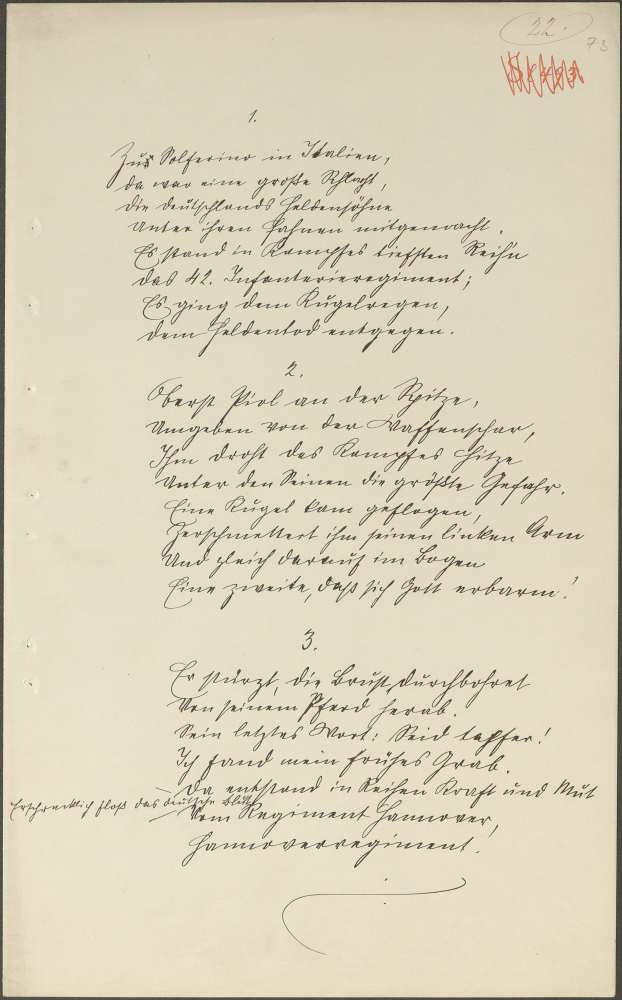 22.
73
1.
Zur Solferino in Italien,
da war eine große Schlacht,
die Deutschlands Heldensöhne
Unter ihren Fahnen mitgemacht.
Es stand in Kampfes tiefsten Reihn
das 42. Infanterieregiment;
Es ging dem Kugelregen,
dem Heldentod entgegen.
2.
Oberst Piol an der Spitze,
Umgeben von der Waffenschar,
Ihm droht des Kampfes Hitze
Unter den Seinen die größte Gefahr.
Eine Kugel kam geflogen,
Zerschmettert ihm seinen linken Arm
Und gleich darauf im Bogen
Eine zweite, daß sich Gott erbarm!
3.
Er stürzt, die Brust durchbohret
Von seinem Pferd herab.
Sein letztes Wort: Seid tapfer!
Ich fand mein frühes Grab.
Da entstand in Reihen Kraft und Mut
Erschrecklich floß das deutsche Blut
Vom Regiment Hannover,
Hannoverregiment!